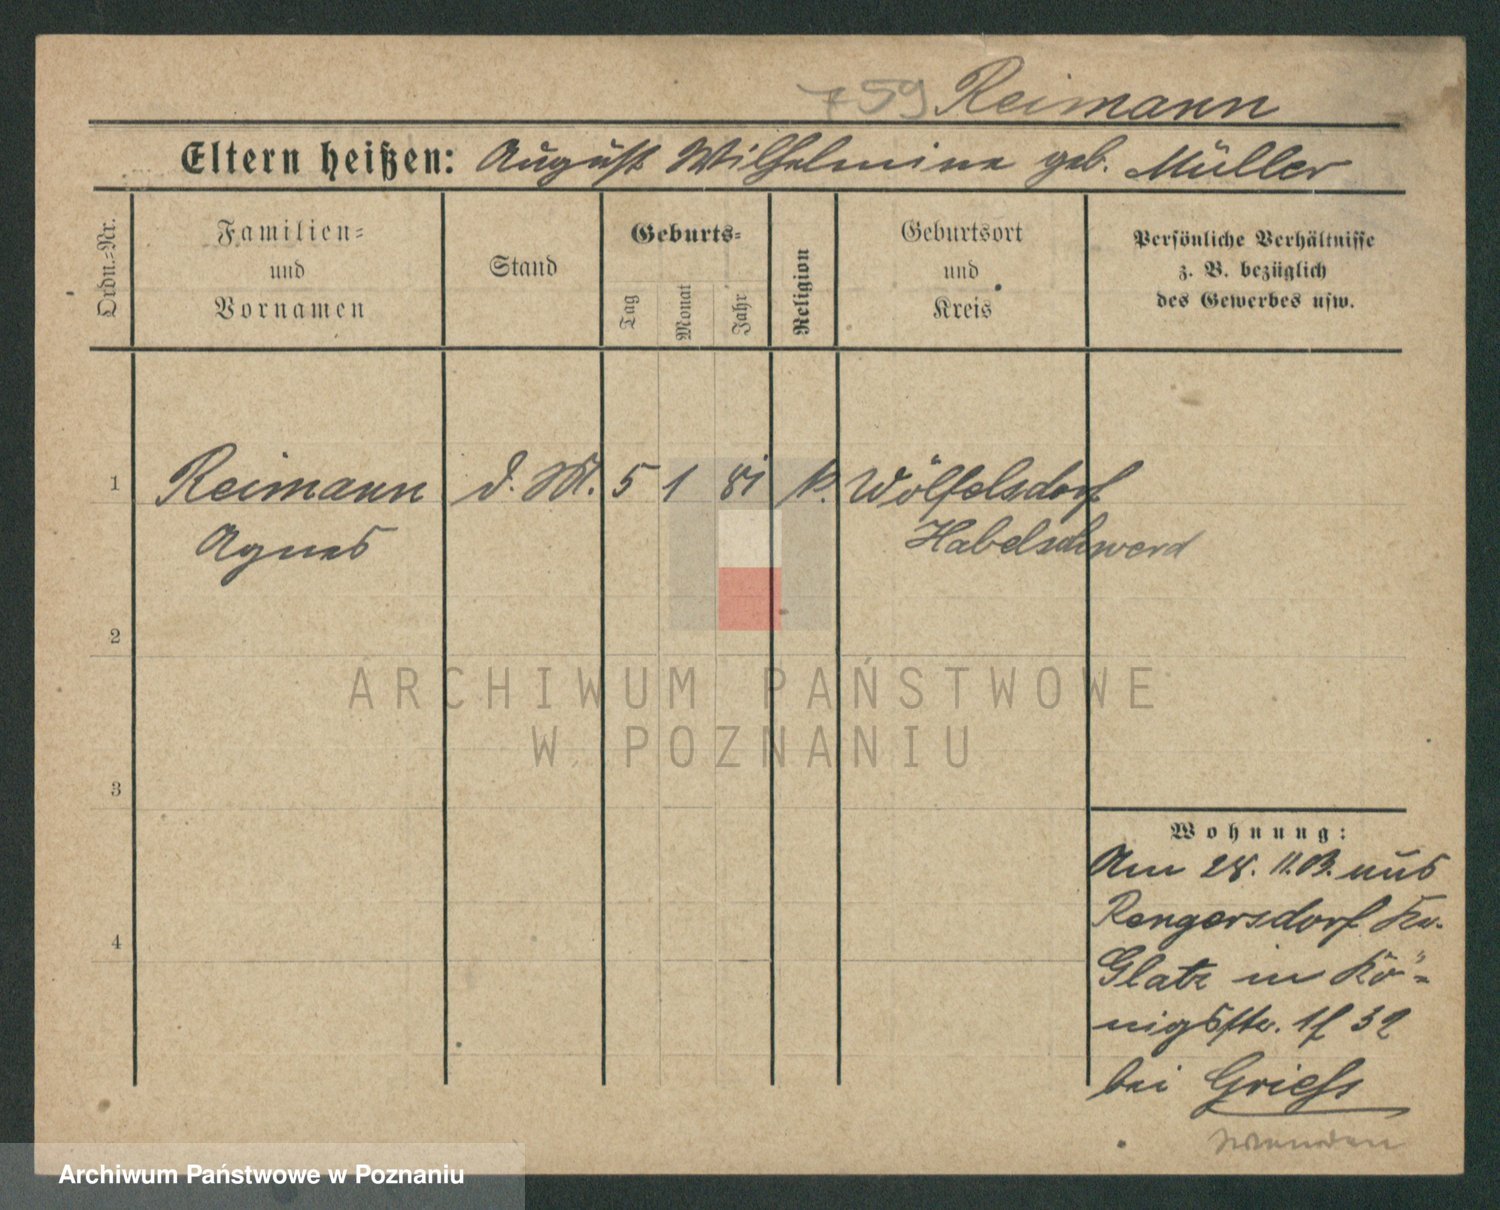 759 Reimann
Eltern heißen: August Wilhelmine geb. Müller
Ordn.-Nr.
Familien-
und
Vornamen
Stand
Geburts-
Tag
Monat
Jahr
Religion
Geburtsort
und
Kreis
Persönliche Verhältnisse
z. B. bezüglich
des Gewerbes usw.
1 Reimann d. M. 5 1 81 k. Wölfelsdorf
Agnes Habelschwerd
2
ARCHIWUM PAŃSTWOWE
W POZNANIU
3
Wohnung:
Am 28. 11. 13. aus
Rengersdorf Kr.
4
Glatz in Kö-
nigsstr. 1f 32
bei Griehs
wenden
Archiwum Państwowe w Poznaniu